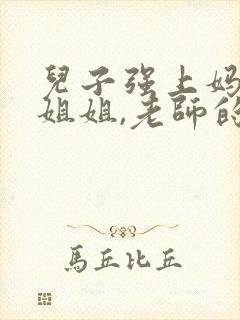 兒子强上妈
姐姐,老師的
馬丘比丘